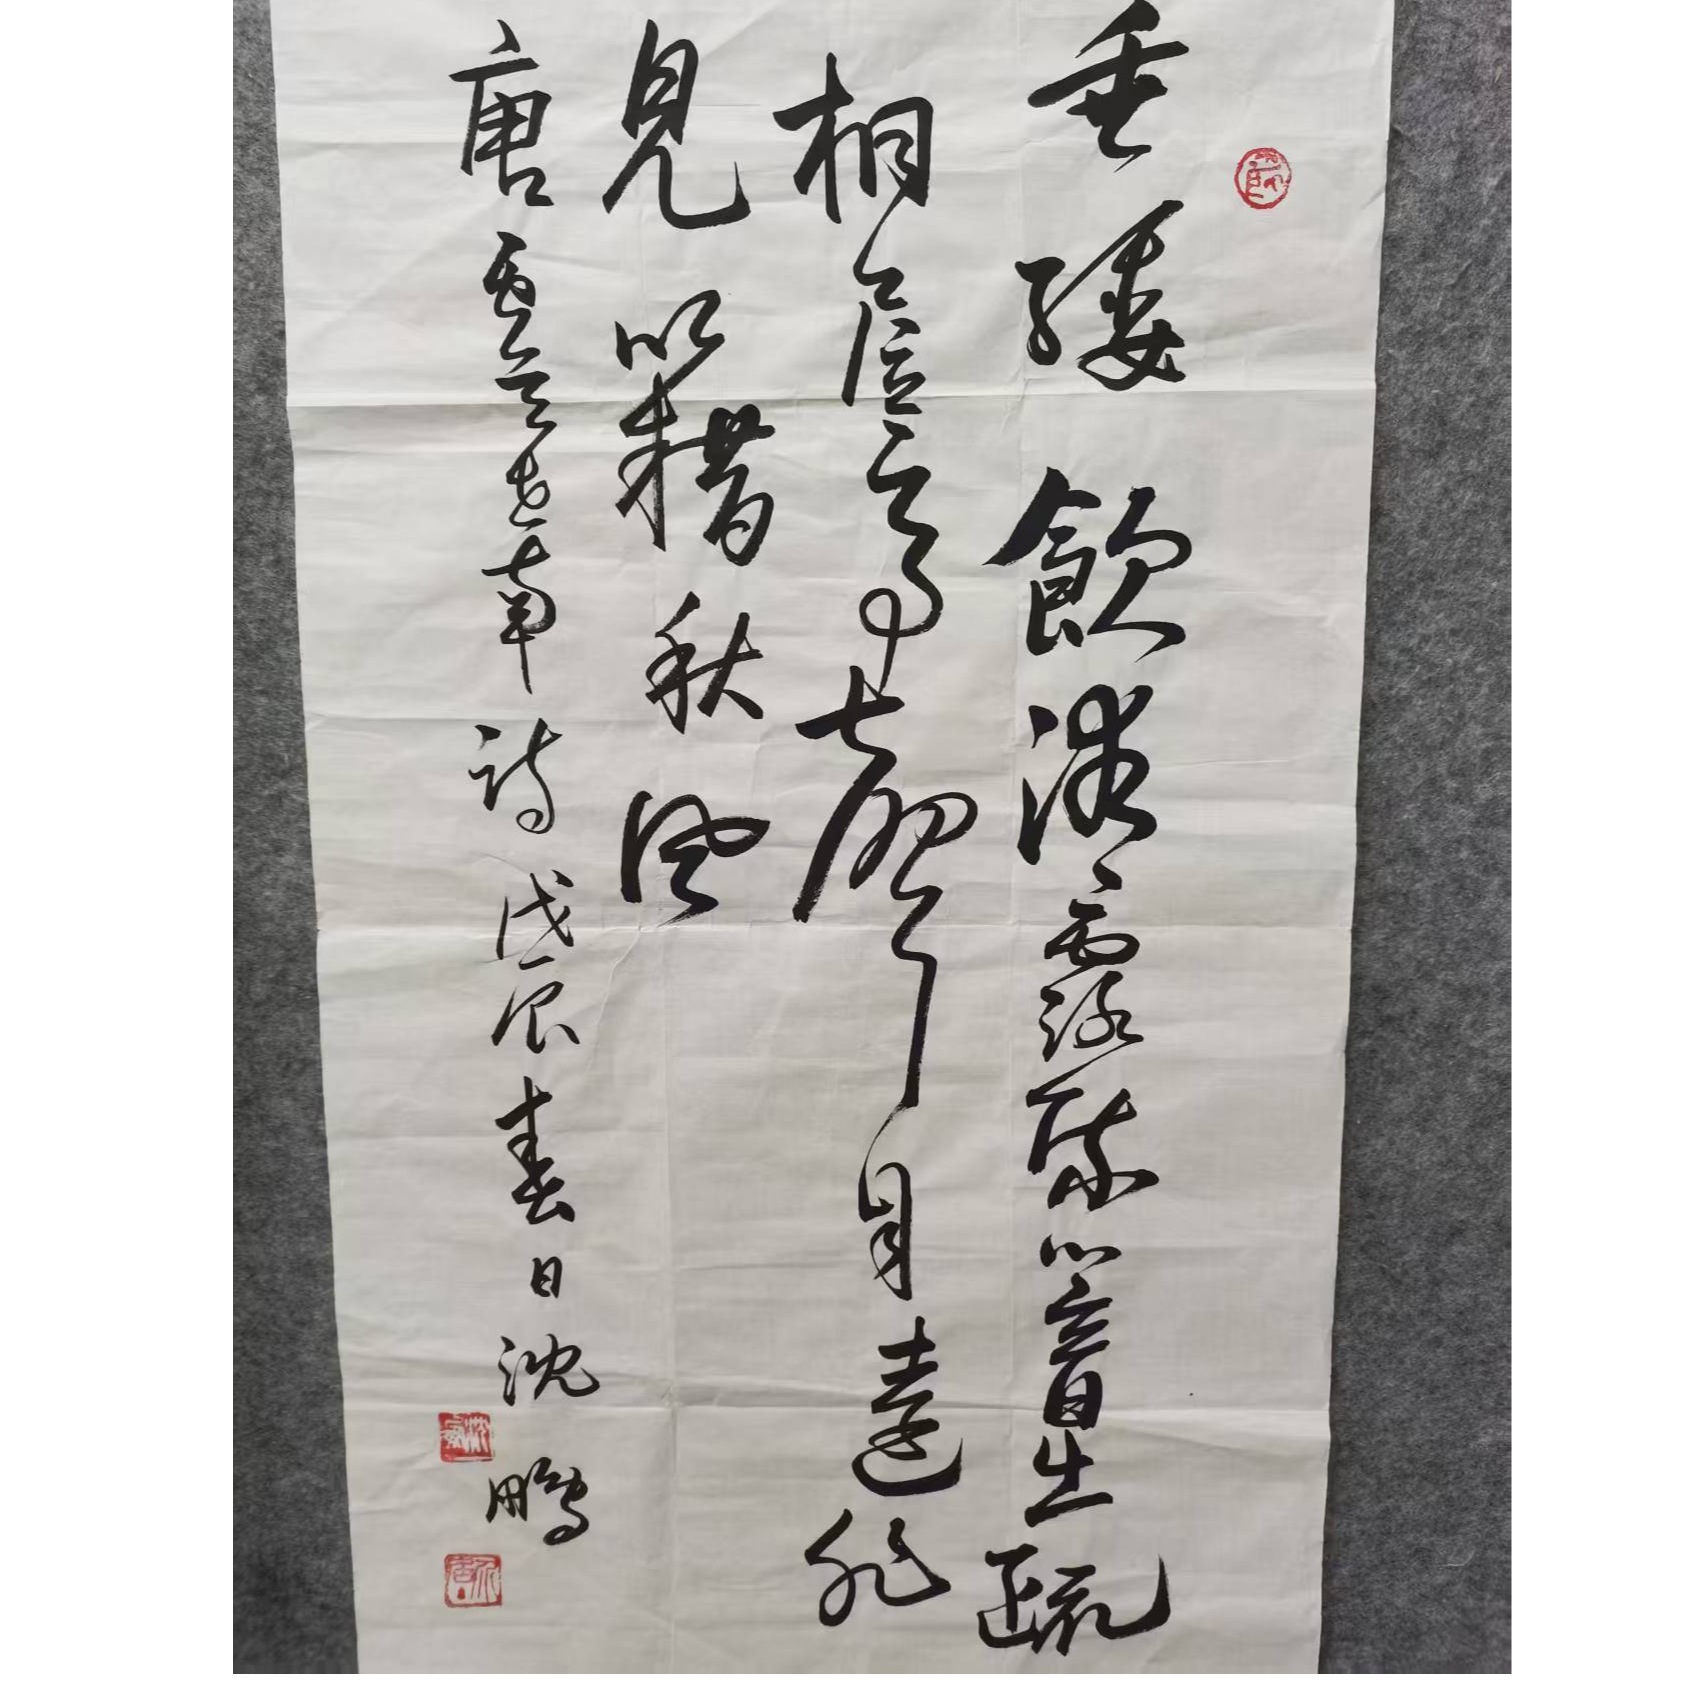 垂緌飲清露流響出疏
桐居高聲自遠非
是籍秋風
唐虞世南詩戊辰春日沈鵬